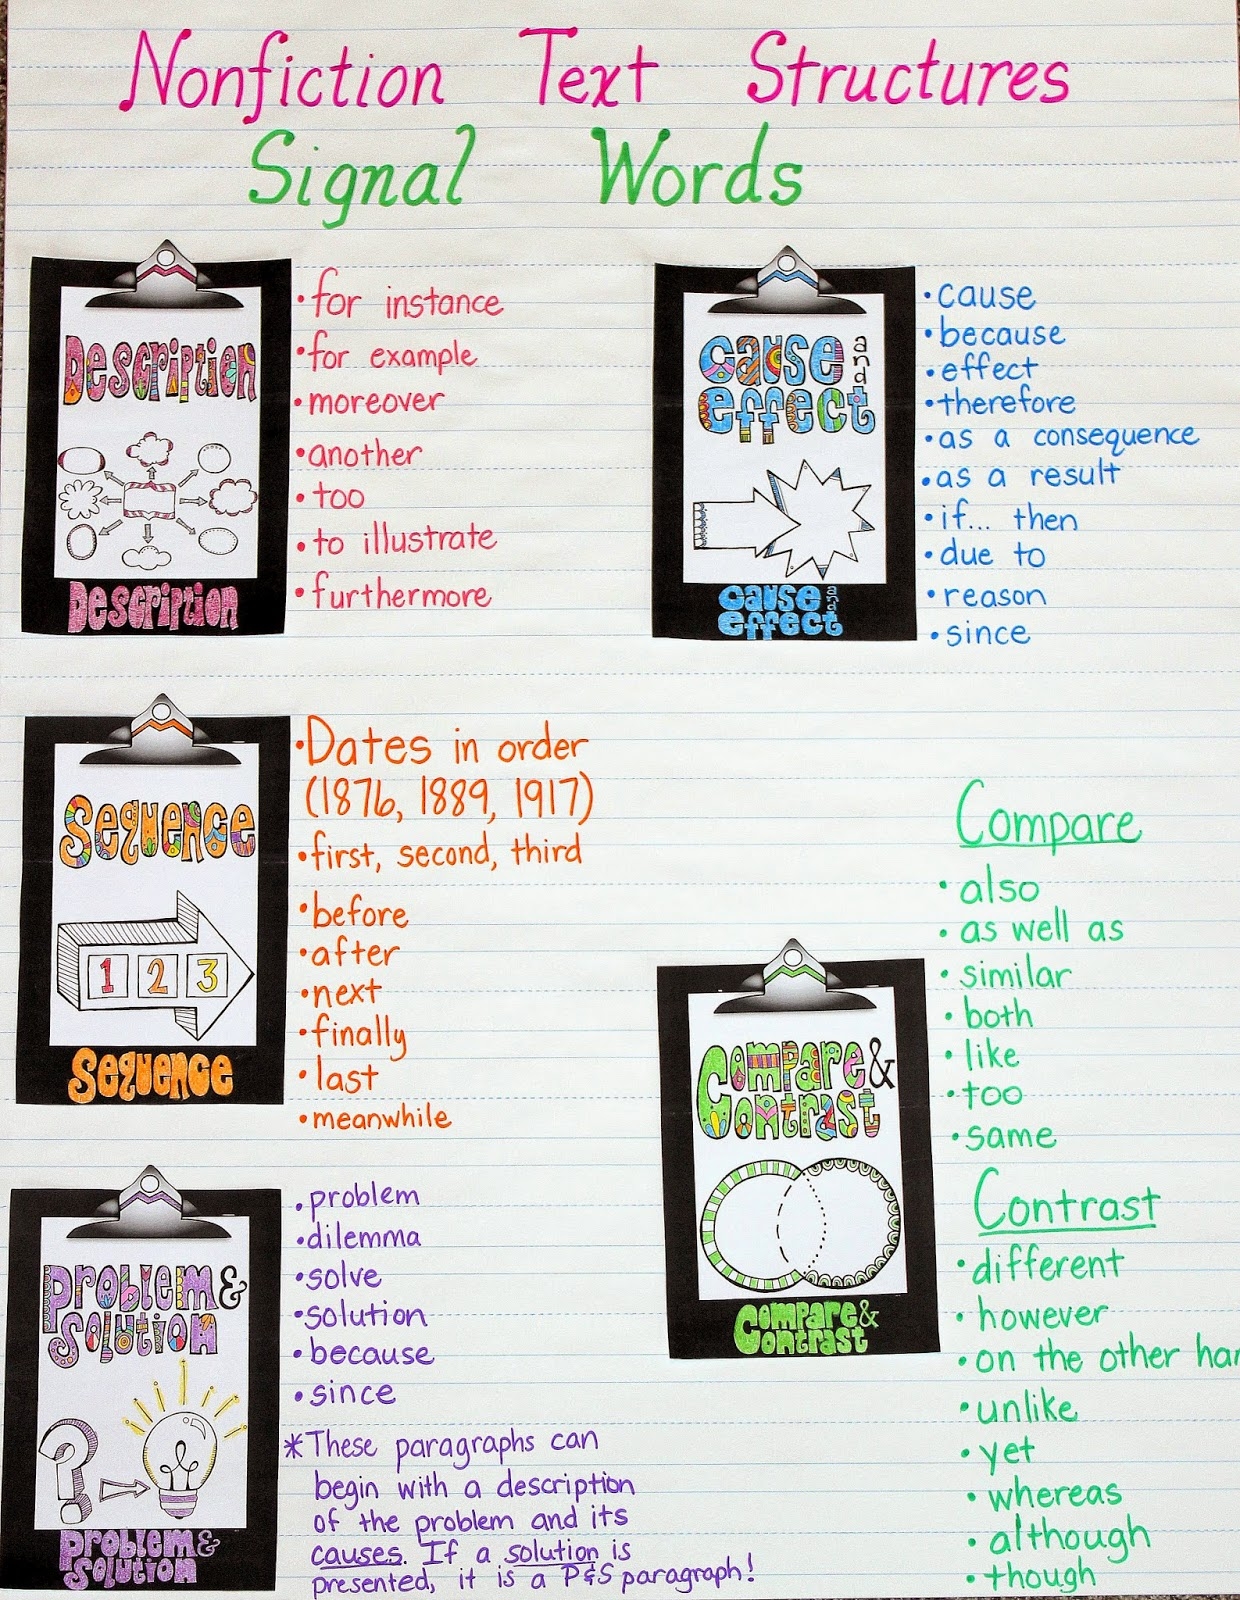 Nonfiction Text Structures
Signal Words
Description
Description
• for instance
• for example
• moreover
• another
• too
• to illustrate
• furthermore
Cause and
effect
Cause and
effect
• cause
• because
• effect
• therefore
• as a consequence
• as a result
• if... then
• due to
• reason
• since
Sequence
1 2 3
Sequence
• Dates in order
(1876, 1889, 1917)
• first, second, third
• before
• after
• next
• finally
• last
• meanwhile
Problem &
Solution
Problem &
Solution
• problem
• dilemma
• solve
• solution
• because
• since
* These paragraphs can
begin with a description
of the problem and its
causes. If a solution is
presented, it is a P&S paragraph!
Compare &
Contrast
Compare &
Contrast
Compare
• also
• as well as
• similar
• both
• like
• too
• same
Contrast
• different
• however
• on the other
• unlike
• yet
• whereas
• although
• though